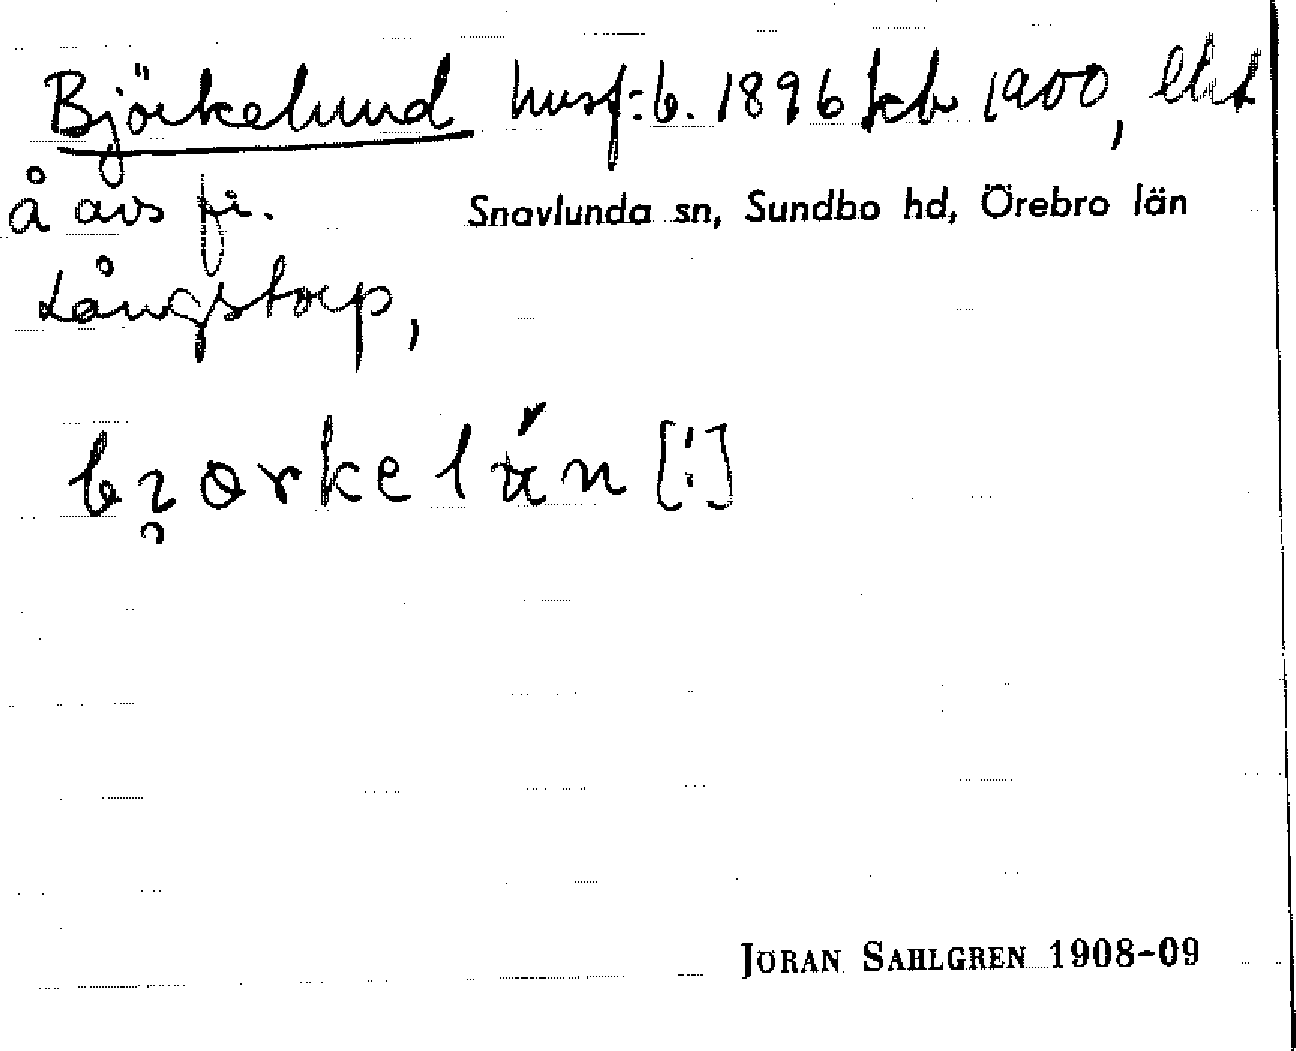 Björkelund husf: b. 1896 kb 1900, lht
å avs fr.
Snavlunda sn, Sundbo hd, Örebro län
Långstorp,
bjørkelún [!]
JÖRAN SAHLGREN 1908-09